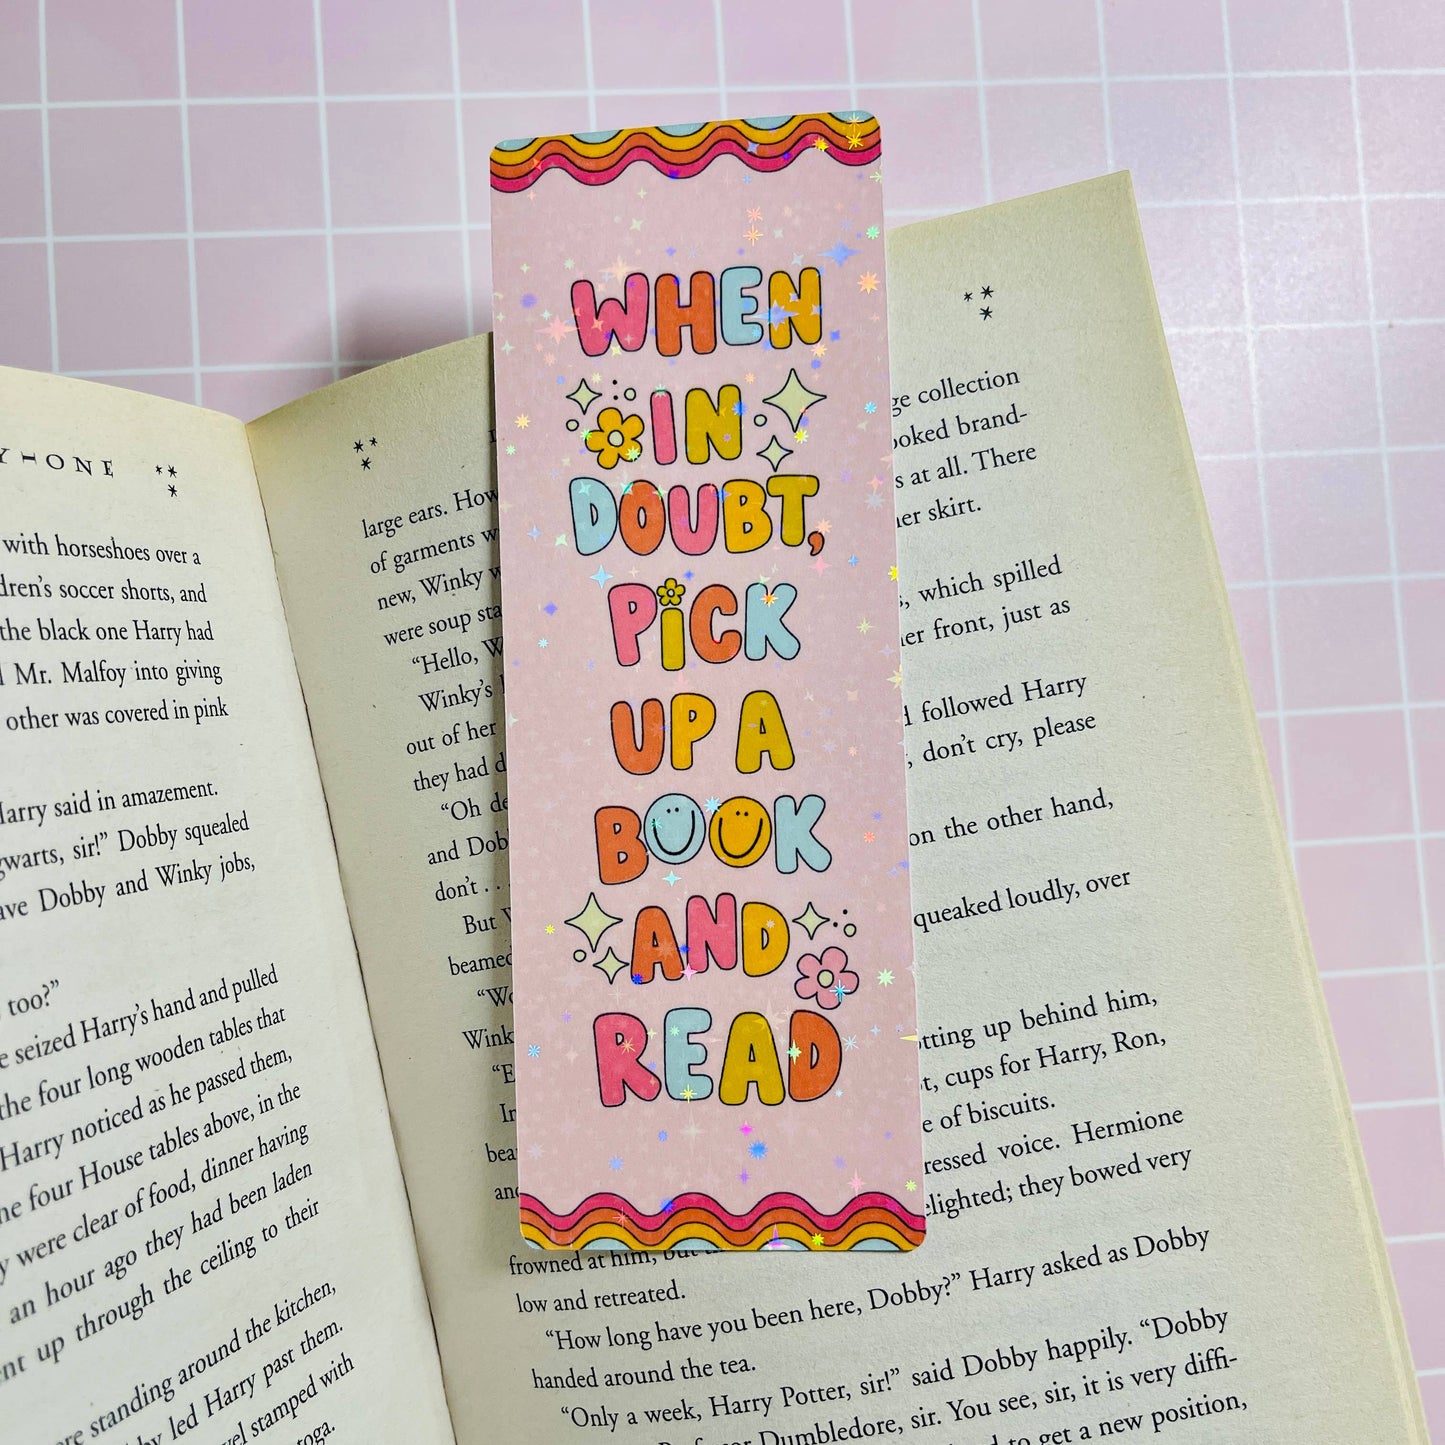 WHEN
IN
DOUBT,
PICK
UP A
BOOK
AND
READ
ONE
with horseshoes over a
soccer shorts, and
the black one Harry had
Mr. Malfoy into giving
other was covered in pink
Harry said in amazement.
sir!” Dobby squealed
Dobby and Winky jobs,
too?”
seized Harry’s hand and pulled
the four long wooden tables that
Harry noticed as he passed them,
four House tables above, in the
were clear of food, dinner having
an hour ago they had been laden
up through the ceiling to their
standing around the kitchen,
led Harry past them.
stamped with
toga.
large ears. How
of garments
new, Winky
were soup
“Hello,
Winky’s
out of her
they had
“Oh
and
don’t . .
But
beamed
collection
at all. There
skirt.
which spilled
front, just as
followed Harry
don’t cry, please
on the other hand,
loudly, over
up behind him,
cups for Harry, Ron,
of biscuits.
voice. Hermione
they bowed very
frowned at him,
low and retreated.
“How long have you been here, Dobby?” Harry asked as Dobby
handed around the tea.
“Only a week, Harry Potter, sir!” said Dobby happily. “Dobby
Dumbledore, sir. You see, sir, it is very diffi-
to get a new position,